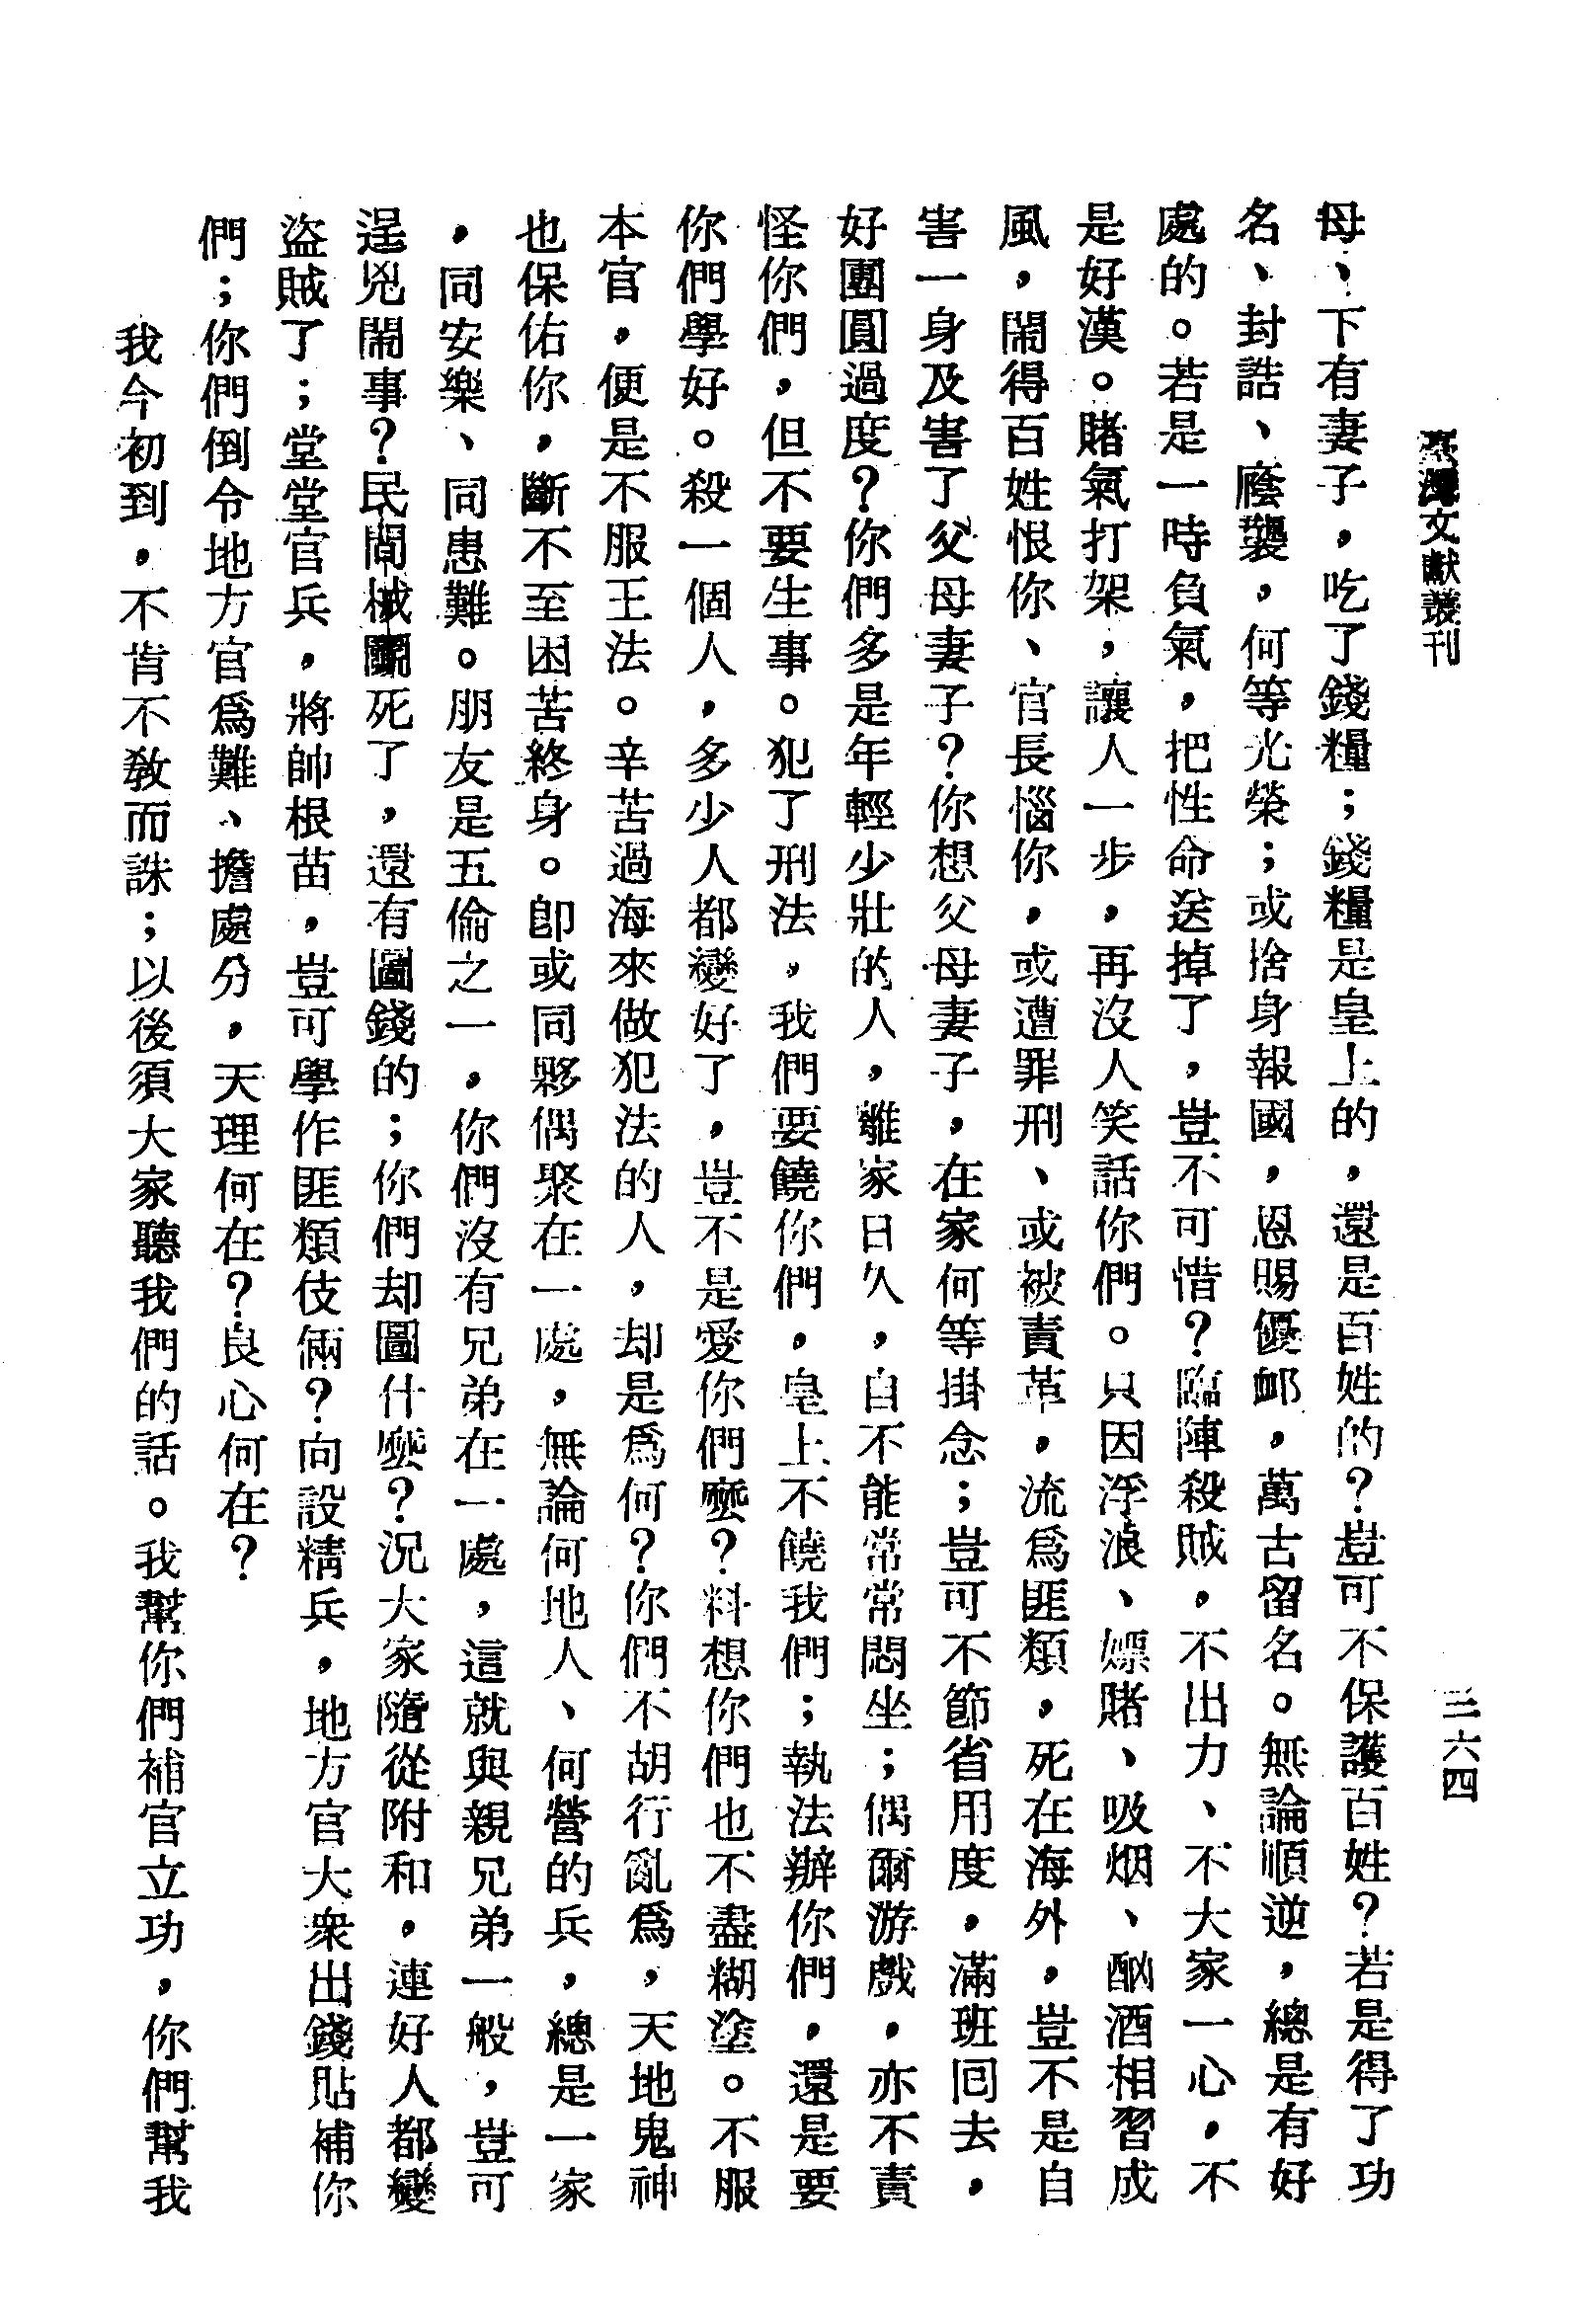 臺灣文獻叢刊
三六四
母、下有妻子，吃了錢糧；錢糧是皇上的，還是百姓的？豈可不保護百姓？若是得了功
名、封誥、廕襲，何等光榮；或捨身報國，恩賜優卹，萬古留名。無論順逆，總是有好
處的。若是一時負氣，把性命送掉了，豈不可惜？臨陣殺賊，不出力、不大家一心，不
是好漢。賭氣打架，讓人一步，再沒人笑話你們。只因浮浪、嫖賭、吸烟、酗酒相習成
風，鬧得百姓恨你、官長惱你，或遭罪刑、或被責革，流爲匪類，死在海外，豈不是自
害一身及害了父母妻子？你想父母妻子，在家何等掛念；豈可不節省用度，滿班回去，
好團圓過度？你們多是年輕少壯的人，離家日久，自不能常常悶坐；偶爾游戲，亦不責
怪你們，但不要生事。犯了刑法，我們要饒你們，皇上不饒我們；執法辦你們，還是要
你們學好。殺一個人，多少人都變好了，豈不是愛你們麼？料想你們也不盡糊塗。不服
本官，便是不服王法。辛苦過海來做犯法的人，却是爲何？你們不胡行亂爲，天地鬼神
也保佑你，斷不至困苦終身。卽或同夥偶聚在一處，無論何地人、何營的兵，總是一家
，同安樂、同患難。朋友是五倫之一，你們沒有兄弟在一處，這就與親兄弟一般，豈可
逞兇鬧事？民間械鬭死了，還有圖錢的；你們却圖什麼？況大家隨從附和，連好人都變
盜賊了；堂堂官兵，將帥根苗，豈可學作匪類伎倆？向設精兵，地方官大衆出錢貼補你
們；你們倒令地方官爲難、擔處分，天理何在？良心何在？
我今初到，不肯不教而誅；以後須大家聽我們的話。我幫你們補官立功，你們幫我